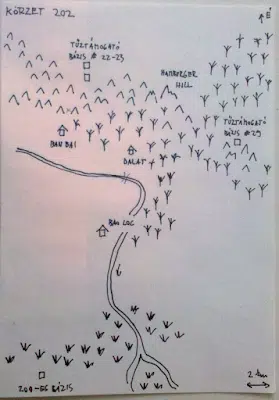 KÖRZET 202
É
TŰZTÁMOGATÓ
BÁZIS # 22-23
HAMBURGER
HILL
TŰZTÁMOGATÓ
BÁZIS # 29
BAN BAI
DALAT
BAO LOC
204-ES BÁZIS